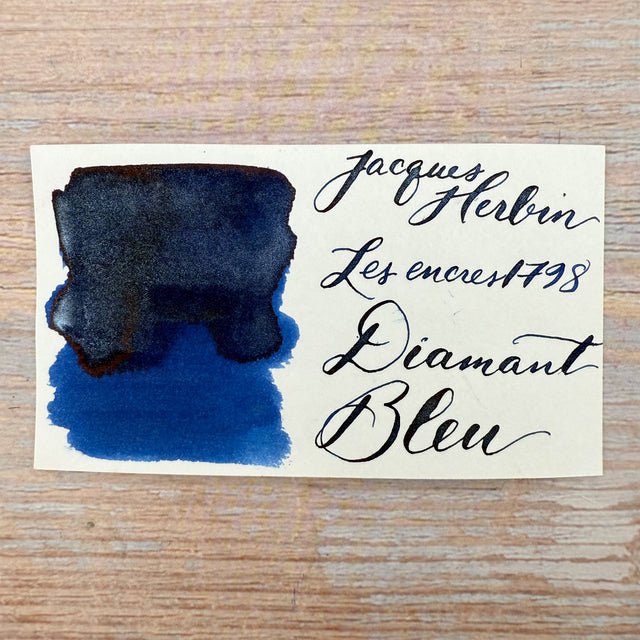 Jacques
Herbin
Les encres 1798
Diamant
Bleu